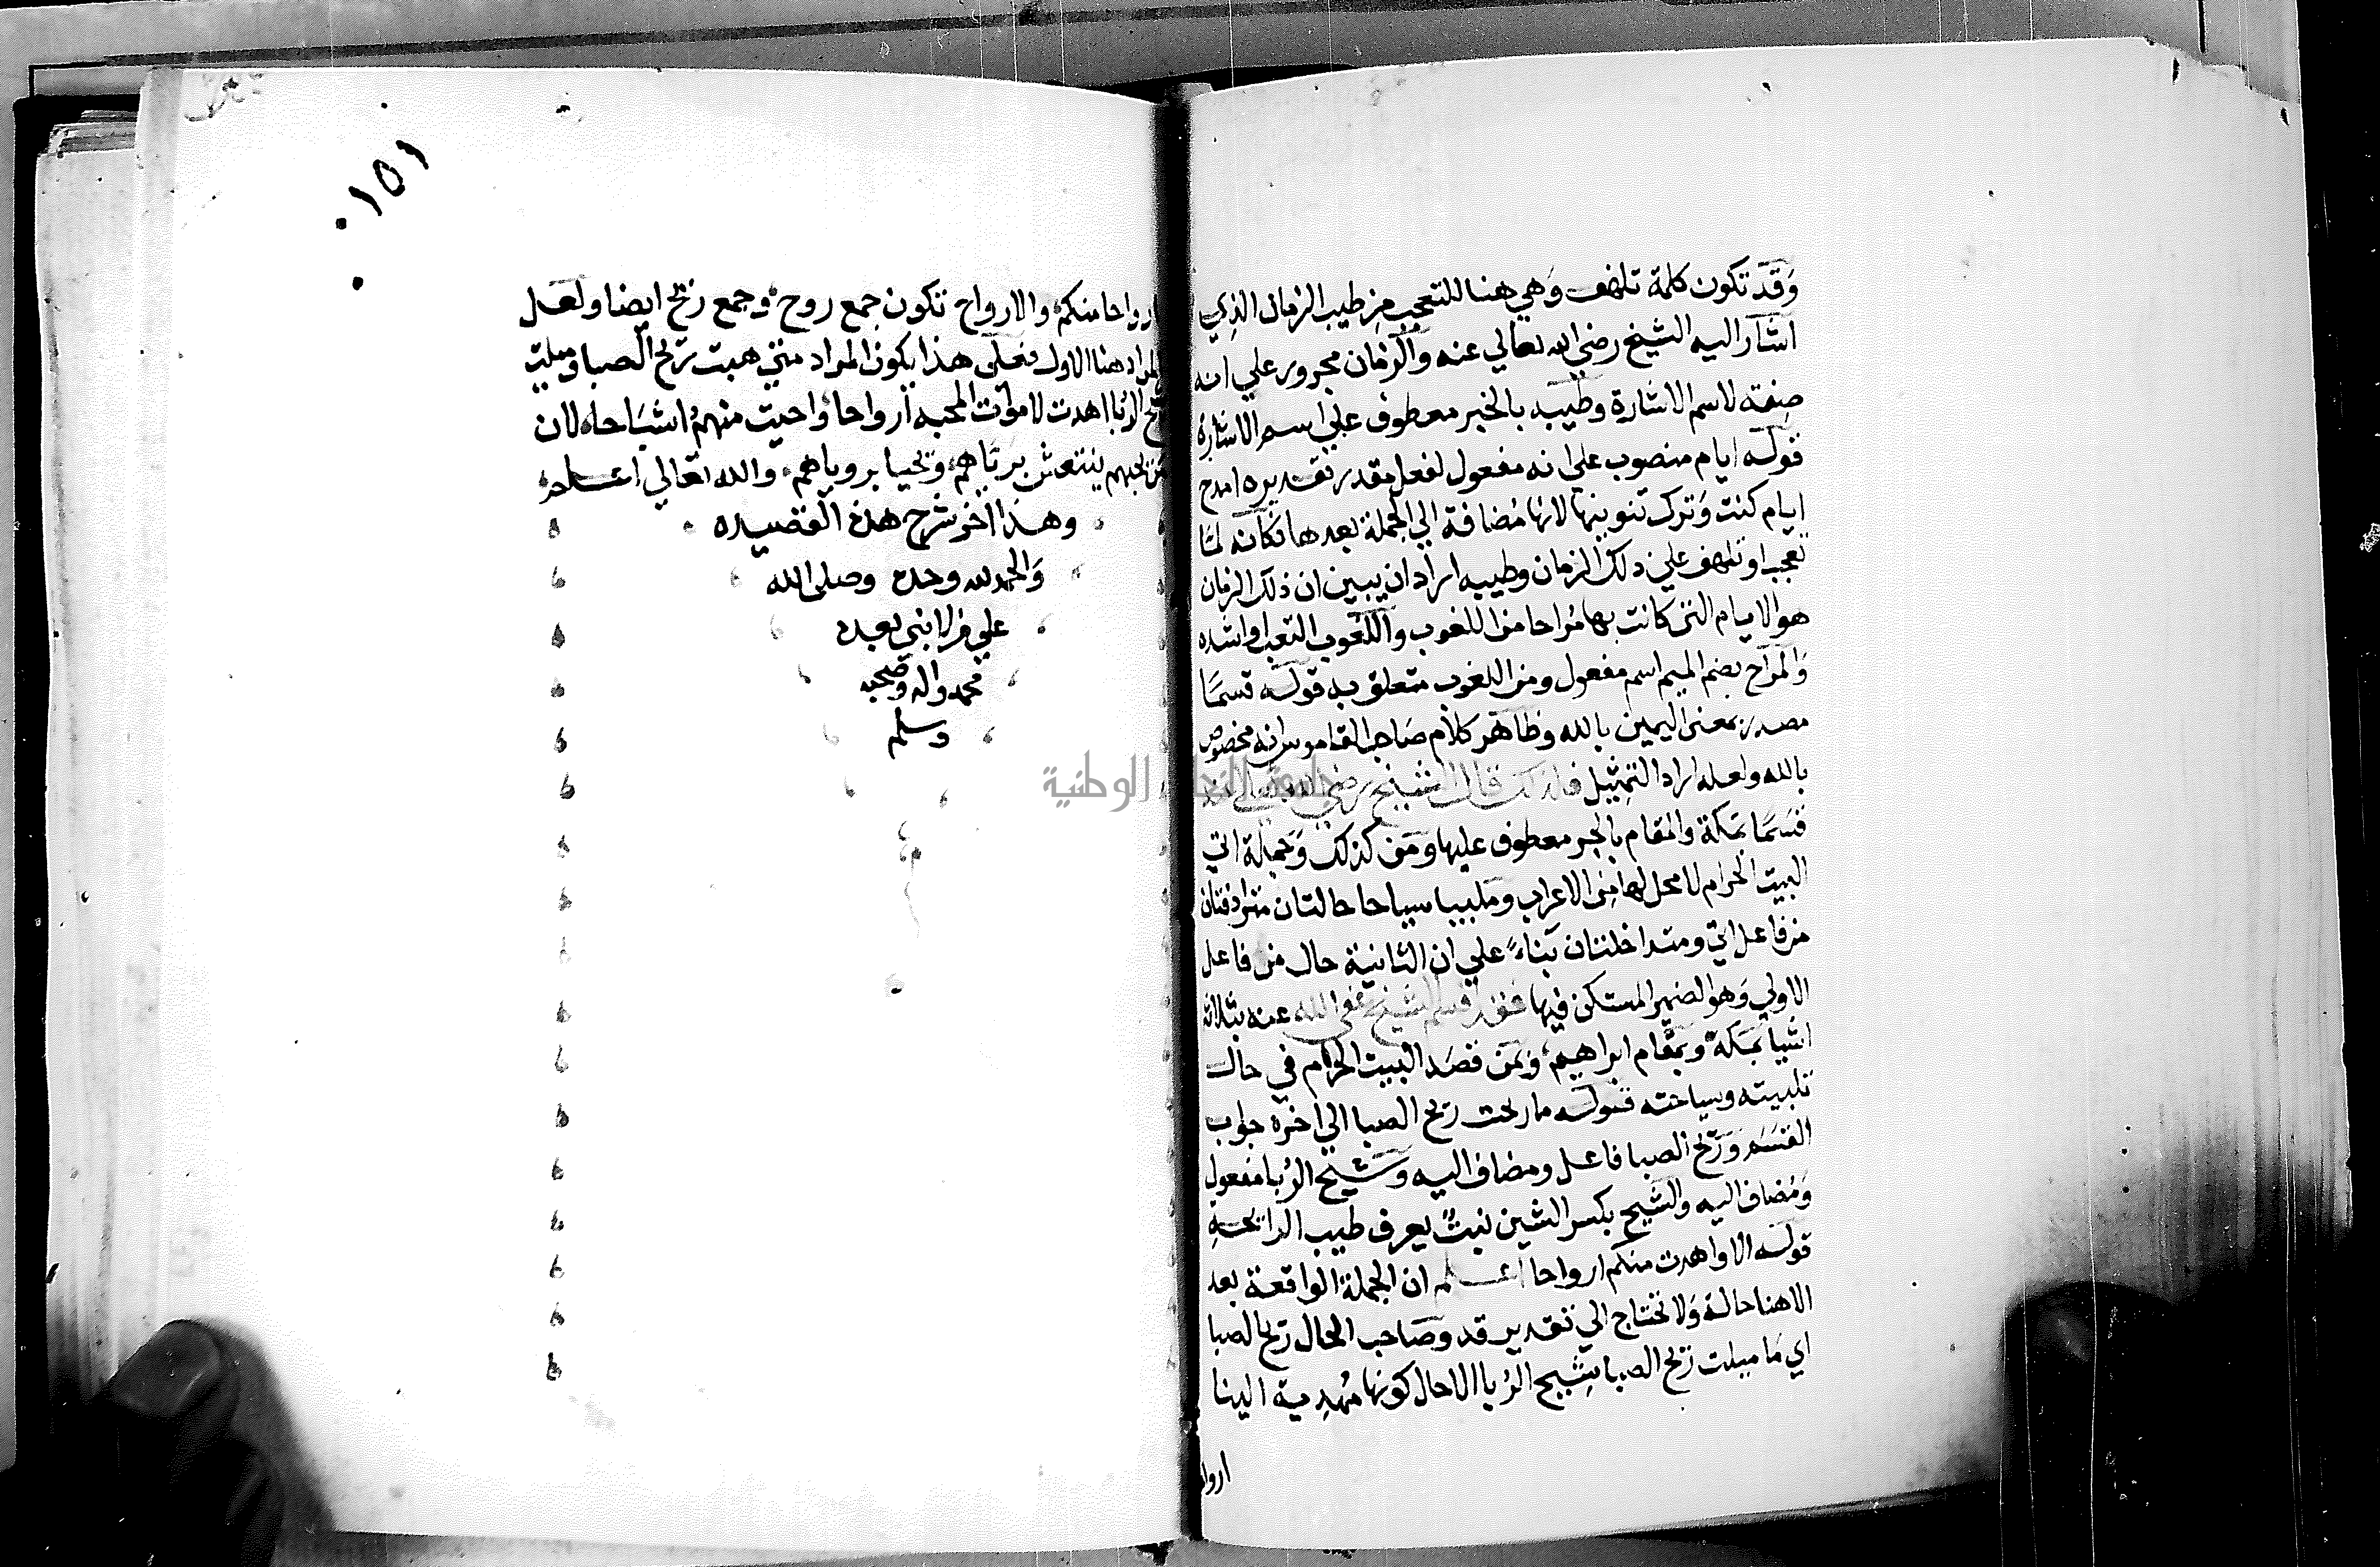 وَقَد تكون كلمة تلهف وَهي هنا للتعجب من طيب الزمان الذِي
اشار اليه الشيخ رضي الله تعالي عنه والزمان مجرور علي انه
صِفته لاسم الاشارة وطيبه بالخبر معطوف علي اسم الاشارة
قوله ايام منصوب علي انه مفعول لفعل مقدر تقديره امدح
ايام كنت وَترك تنوينها لانها مُضافة الي الجملة بعدها فكانه لمّا
تعجب او تلهف علي ذلك الزمان وطيبه اراد ان يبين ان ذلك الزمان
هو الايام التي كانت بها مُراحا من اللغوب واللغوب التعب او اشده
وَالمراح بضم الميم اسم مفعول ومن اللغوب متعلق به قوله قسمًا
مصدر بمعنى اليمين بالله وظاهر كلام صَاحب القاموس انه مخصوص
بالله ولعله اراد التمثيل فلذلك قال الشيخ رضي الله تعالي عنه
قسَمًا بمكة والمقام بالجر معطوف عليها ومَن كذلك وَجملة اتي
البيت الحرام لا محل لها مِن الاعراب وملبيا سياحا حالتان مترادفتان
من فاعل اتي ومتداخلتان بَناءً علي ان الثانية حال من فاعل
الاولي وَهو الضمير المستكن فيها فقد اقسم الشيخ عفي الله عنه بثلاثة
اشيا بمكة وبمقام ابراهيم وبمَن قصَد البيت الحرام في حال
تلبيته وسياحته فقوله ما رنحت ريح الصبا الي اخره جواب
القسَم وَريح الصبا فاعل ومضاف اليه وشيح الرُبا مفعول
وَمُضاف اليه والشيح بكسر الشين نبتٌ يعرف طيب الرائحةِ
قوله الا واهدت منكم ارواحا اعلم ان الجملة الواقعة بعد
الا هنا حالة وَلا تحتاج الي تقدير قد وصَاحب الحال ريح الصبا
اي مَا ميلت ريح الصبا شِيح الرُبا الا حال كونها مُهدِية الينا
اروا
١٥١
ارواحا منكم والارواح تكون جمع روح وجمع ريح ايضا ولعَل
المراد هنا الاول فعلى هذا يكون المراد متي هبت ريح الصبا وميلت
شيح الرُبا اهدت لاموات المحبه ارواحا واحيت منهم اشباحا لان
من يحبهم ينتعش برياهم ويحيا بروياهم والله تعالي اعلم
وهذا اخر شرح هذه القصيده
وَالحمد لله وحده وصلى الله
علي من لا نبي بعده
محمد واله وصحبه
وسلم
جامعة النجاح الوطنية